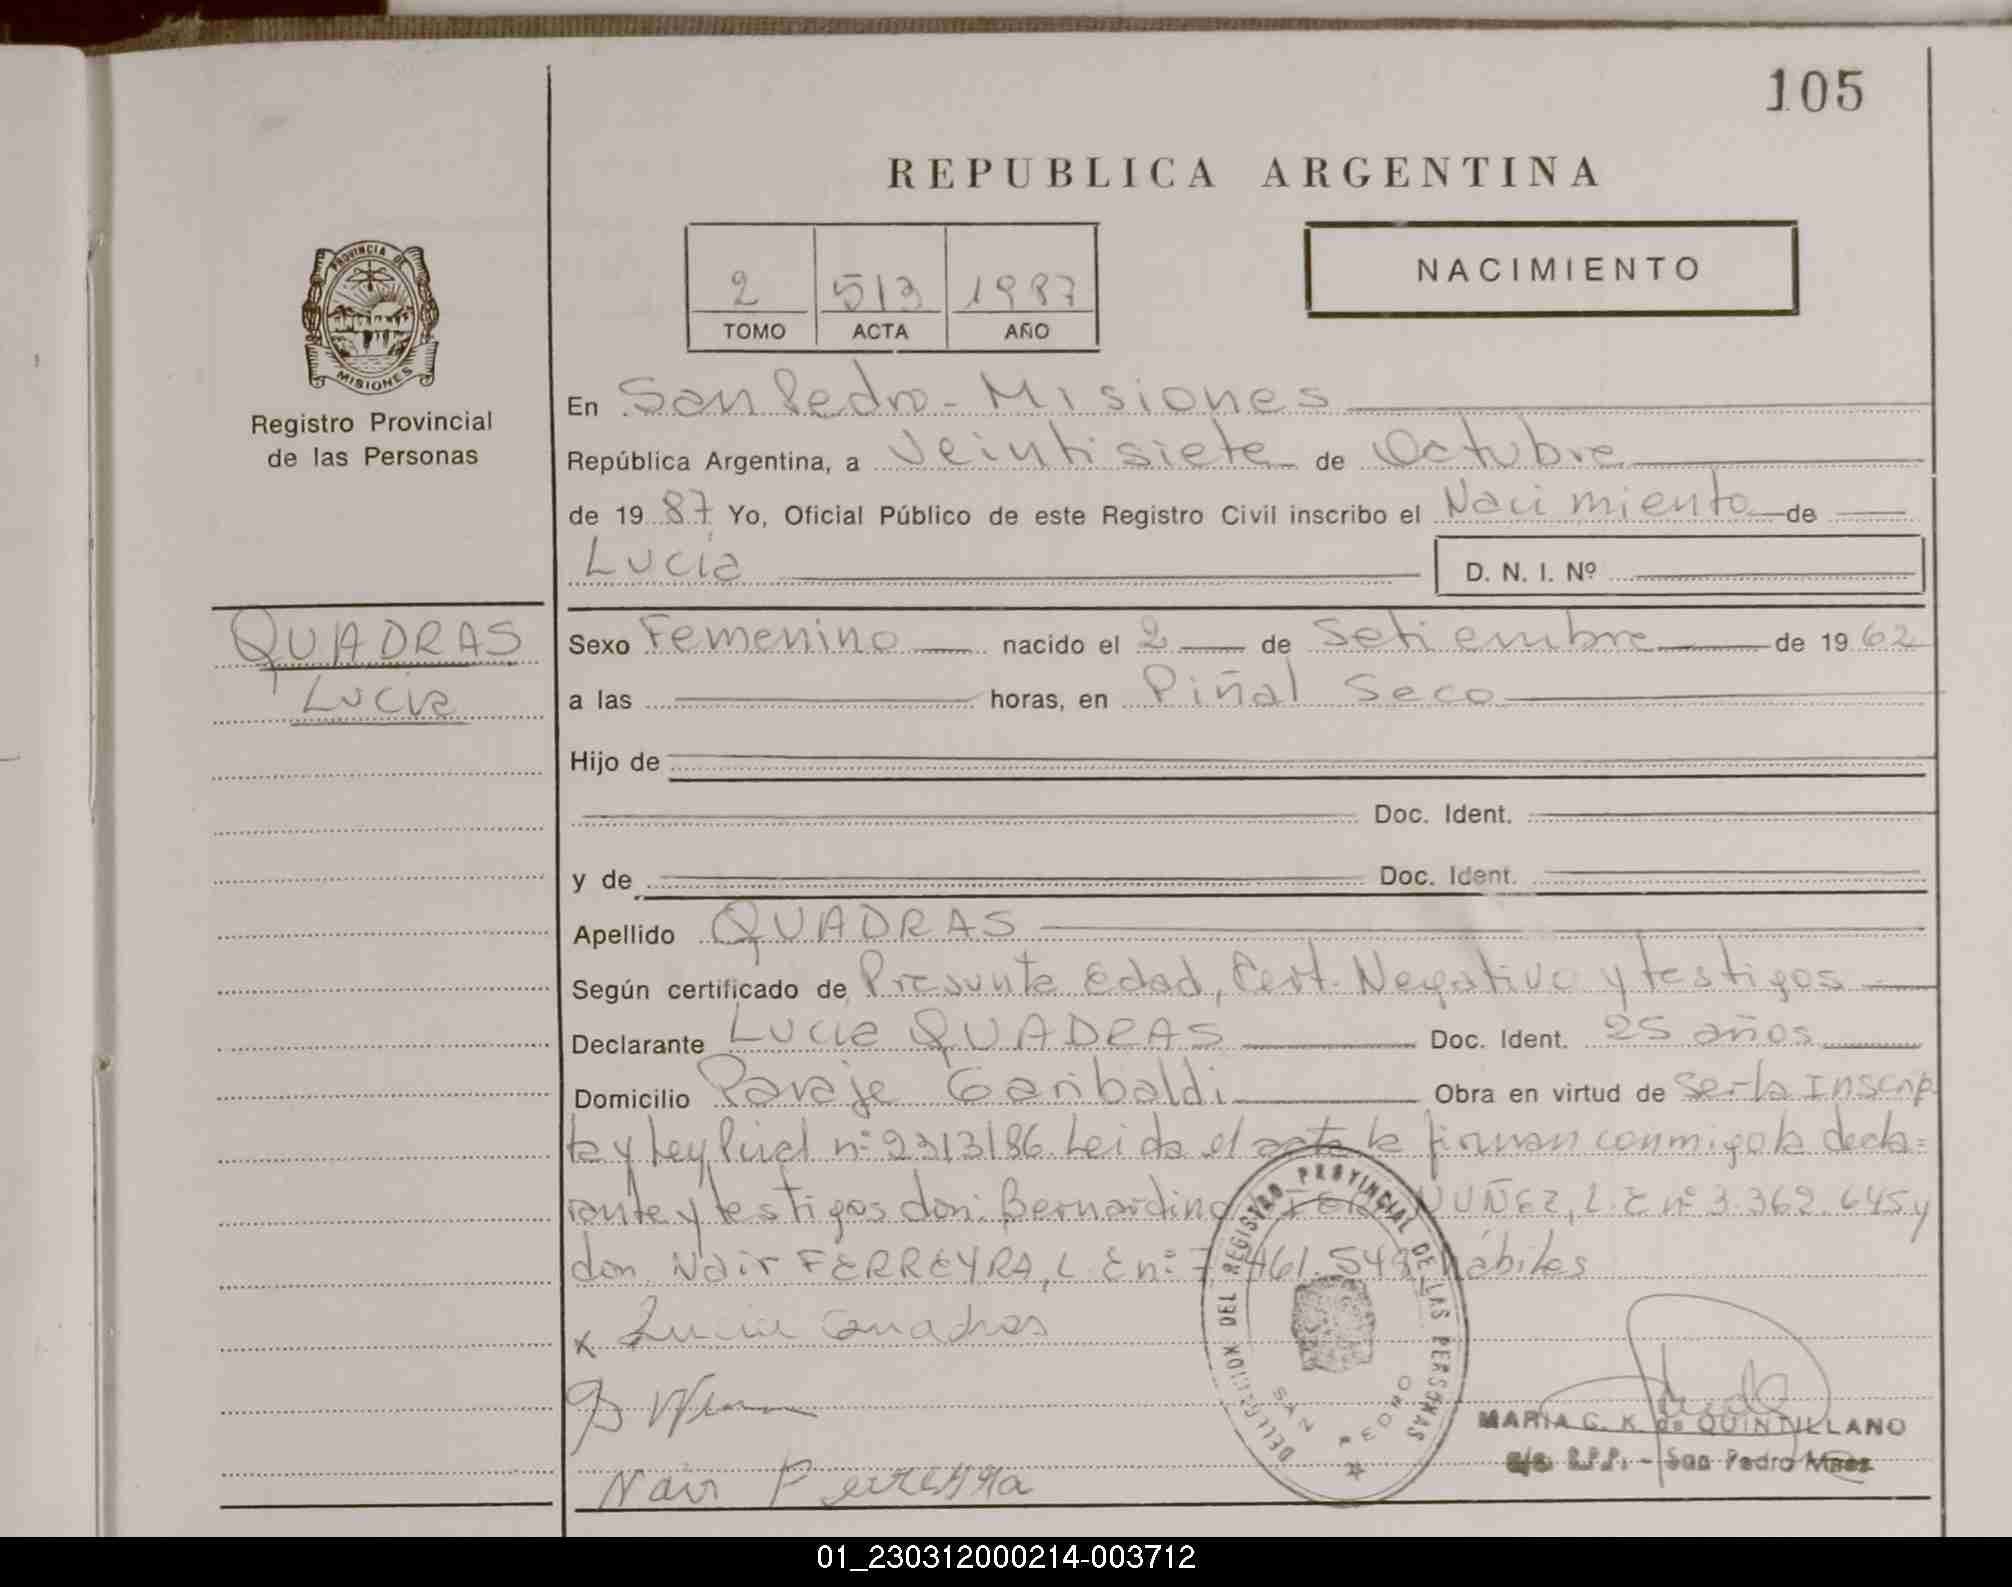 105
REPUBLICA ARGENTINA
PROVINCIA DE
MISIONES
Registro Provincial
de las Personas
2 513 1987
TOMO ACTA AÑO
NACIMIENTO
En San Pedro - Misiones
República Argentina, a Veintisiete de Octubre
de 1987 Yo, Oficial Público de este Registro Civil inscribo el Nacimiento de
Lucía
D. N. I. Nº
QUADRAS
Lucia
Sexo Femenino nacido el 2 de Setiembre de 1962
a las horas, en Piñal Seco
Hijo de
Doc. Ident.
y de Doc. Ident.
Apellido QUADRAS
Según certificado de Presunta Edad, Cert. Negativo y testigos
Declarante Lucia QUADRAS Doc. Ident. 25 años
Domicilio Paraje Garibaldi Obra en virtud de Ser la Inscrip
ta y Ley Pircl nº 2313/86 Leida el acta la firman conmigo la decla=
rante y testigos don: Bernardino NUÑEZ, L.E nº 3.362.645 y
don Nair FERREYRA, L E nº: 7.461.549 hábiles
x Lucia Cuadras
Nair Ferreyra
DELEGACION DEL REGISTRO PROVINCIAL DE LAS PERSONAS
SAN PEDRO
MARIA C. K. de QUINTILLANO
a/c R.P.P. - San Pedro Mnes
01_230312000214-003712